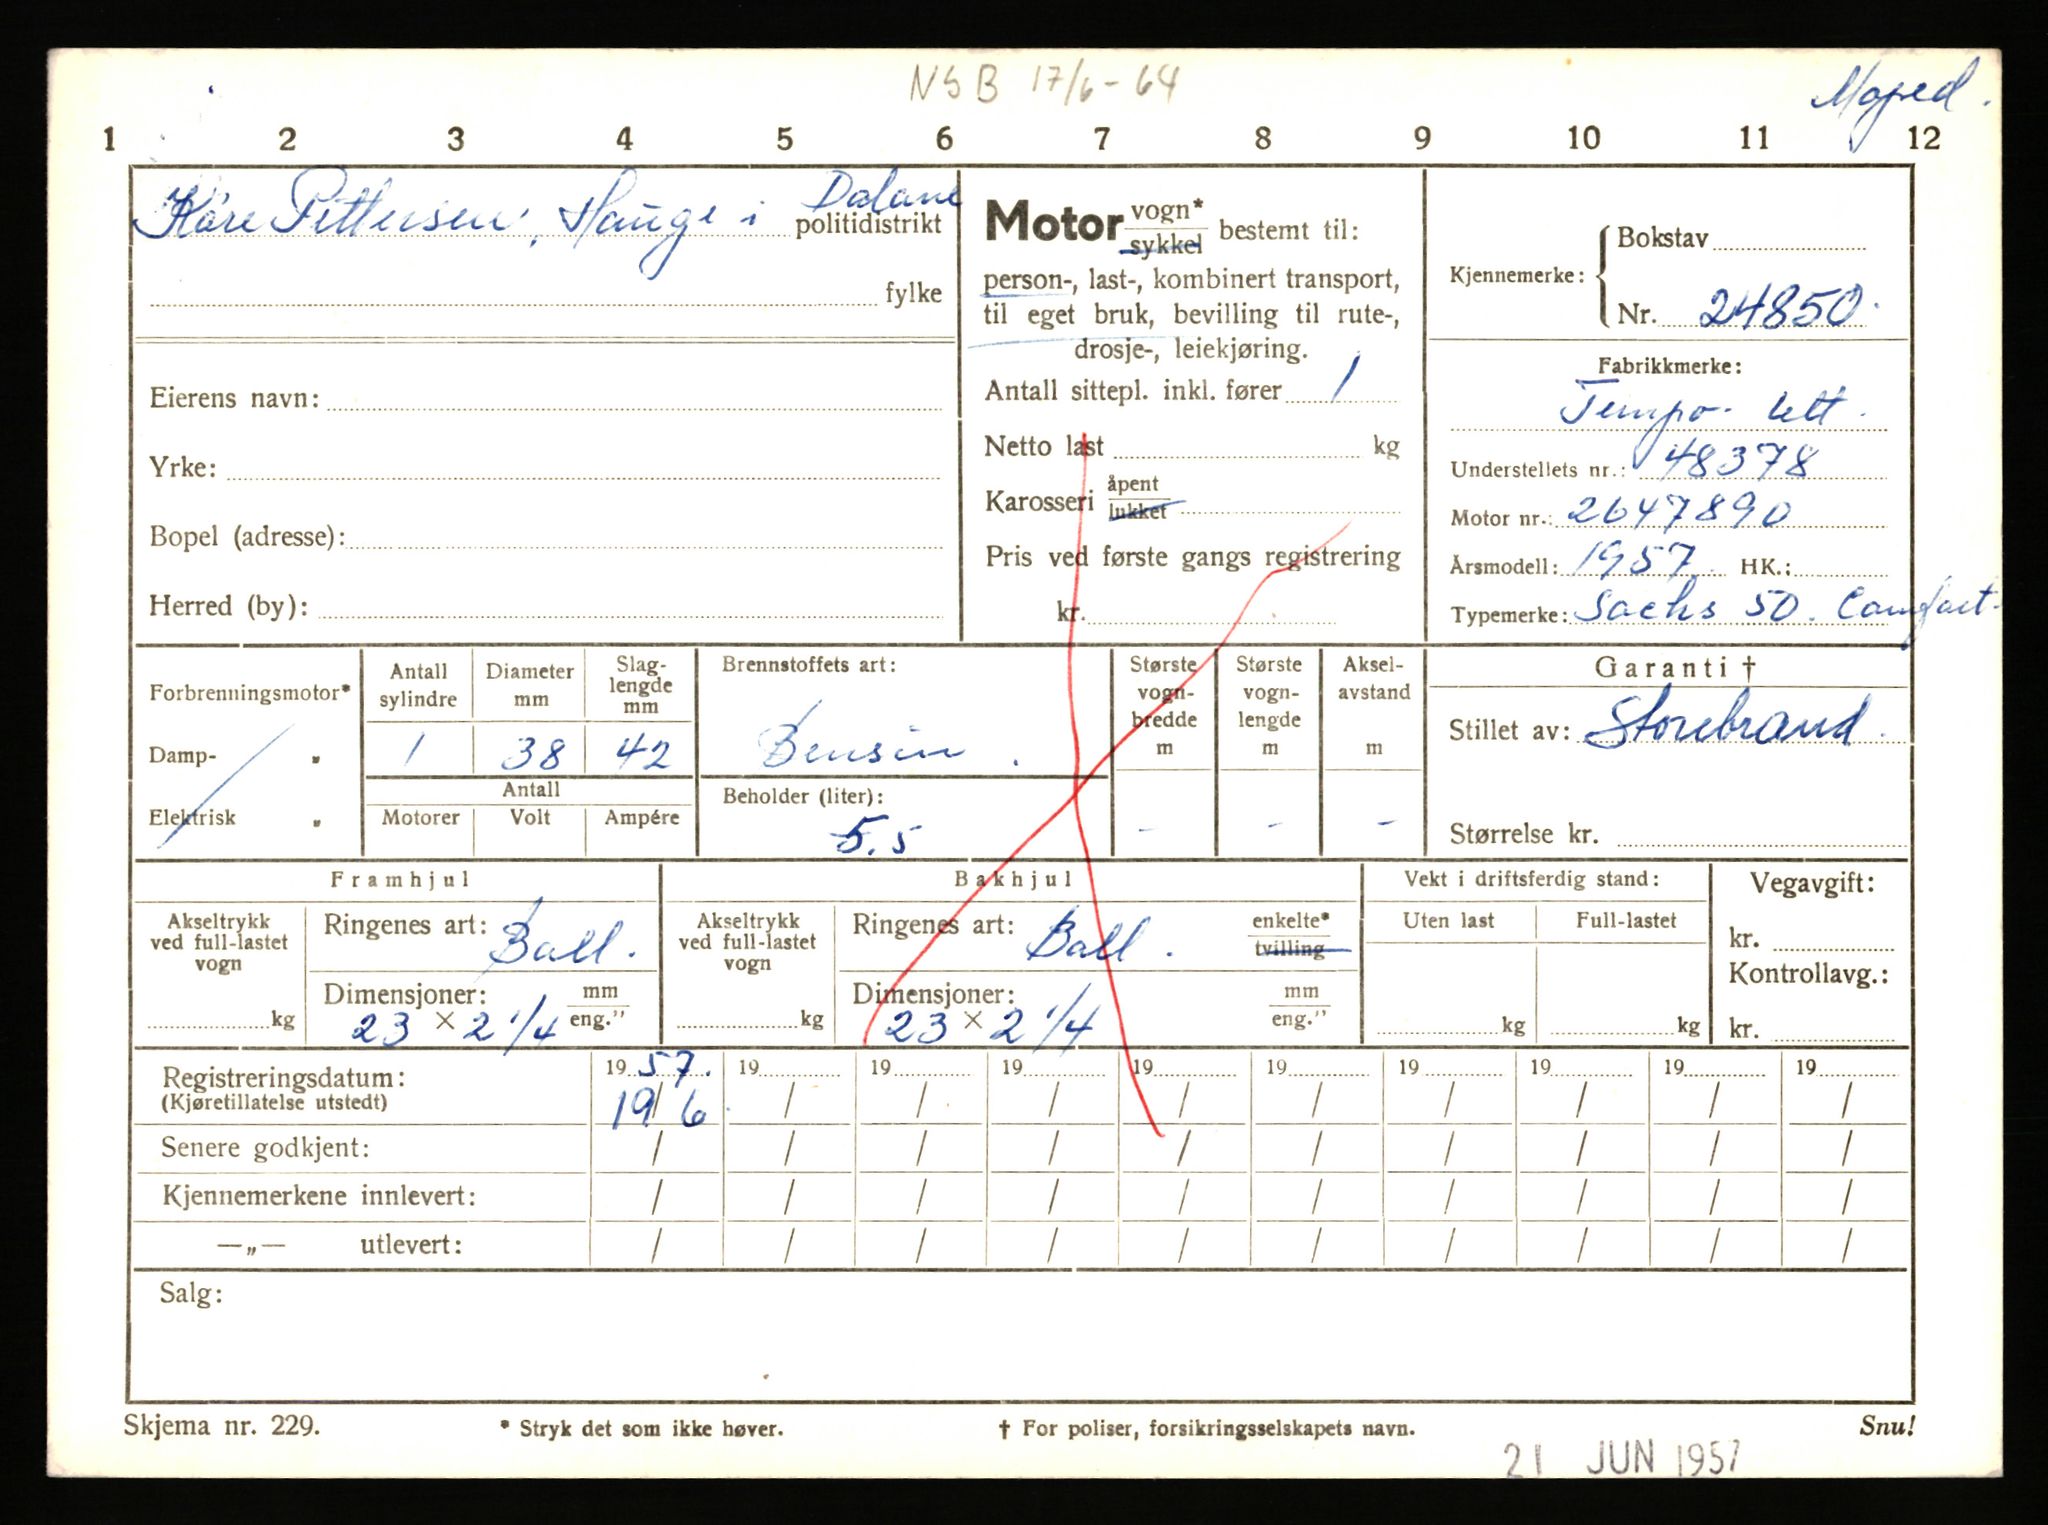 NSB 17/6-64
Moped.
1 2 3 4 5 6 7 8 9 10 11 12
Kåre Pettersen, Hauge i Dalane politidistrikt
fylke
Eierens navn:
Yrke:
Bopel (adresse):
Herred (by):
Motor vogn* sykkel bestemt til:
person-, last-, kombinert transport,
til eget bruk, bevilling til rute-,
drosje-, leiekjøring.
Antall sittepl. inkl. fører 1
Netto last kg
Karosseri åpent lukket
Pris ved første gangs registrering
kr.
Kjennemerke: Bokstav
Nr. 24850.
Fabrikkmerke:
Tempo-lett.
Understellets nr.: 48378
Motor nr.: 2647890
Årsmodell: 1957. HK.:
Typemerke: Sachs 50. Comfort-
Forbrenningsmotor*
Damp- "
Elektrisk "
Antall sylindre
Diameter mm
Slag-lengde mm
1 38 42
Antall
Motorer Volt Ampére
Brennstoffets art:
Bensin.
Beholder (liter):
5.5
Største vogn-bredde m
Største vogn-lengde m
Aksel-avstand m
- - -
Garanti †
Stillet av: Storebrand.
Størrelse kr.
Framhjul
Akseltrykk
ved full-lastet
vogn
kg
Ringenes art:
Ball.
Dimensjoner: mm
23 × 2 1/4 eng."
Bakhjul
Akseltrykk
ved full-lastet
vogn
kg
Ringenes art: enkelte*
Ball. tvilling
Dimensjoner: mm
23 × 2 1/4 eng."
Vekt i driftsferdig stand:
Uten last Full-lastet
kg kg
Vegavgift:
kr.
Kontrollavg.:
kr.
Registreringsdatum: 1957. 19 19 19 19 19 19 19 19 19
(Kjøretillatelse utstedt) 19/6. / / / / / / / / /
Senere godkjent: / / / / / / / / / /
Kjennemerkene innlevert: / / / / / / / / / /
—„— utlevert: / / / / / / / / / /
Salg:
Skjema nr. 229. * Stryk det som ikke høver. † For poliser, forsikringsselskapets navn. Snu!
21 JUN 1957